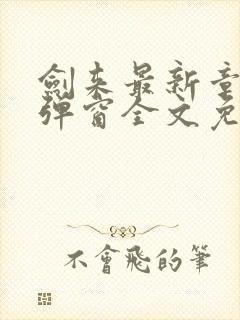 劍来最新章
彈窗全文免
不會飛的筆